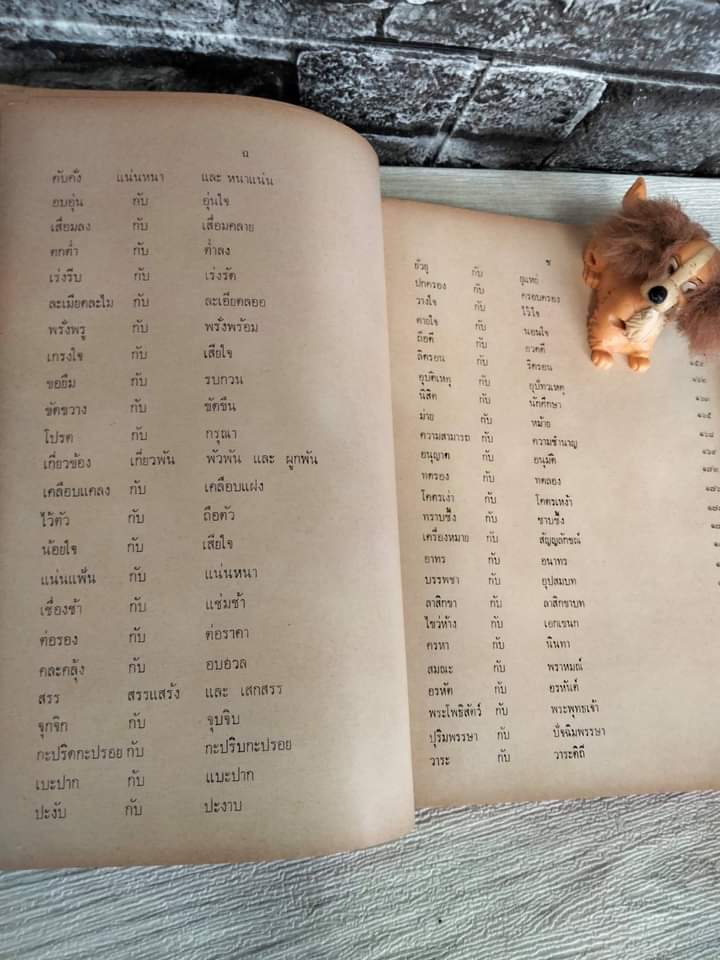 ฉ
คับคั่ง แน่นหนา และ หนาแน่น
อบอุ่น กับ อุ่นใจ
เสื่อมลง กับ เสื่อมคลาย
ตกต่ำ กับ ต่ำลง
เร่งรีบ กับ เร่งรัด
ละเมียดละไม กับ ละเอียดลออ
พรั่งพรู กับ พรั่งพร้อม
เกรงใจ กับ เสียใจ
ขอยืม กับ รบกวน
ขัดขวาง กับ ขัดขืน
โปรด กับ กรุณา
เกี่ยวข้อง เกี่ยวพัน พัวพัน และ ผูกพัน
เคลือบแคลง กับ เคลือบแฝง
ไว้ตัว กับ ถือตัว
น้อยใจ กับ เสียใจ
แน่นแฟ้น กับ แน่นหนา
เชื่องช้า กับ แช่มช้า
ต่อรอง กับ ต่อราคา
คละคลุ้ง กับ อบอวล
สรร สรรแสร้ง และ เสกสรร
จุกจิก กับ จุบจิบ
กะปริดกะปรอย กับ กะปริบกะปรอย
เบะปาก กับ แบะปาก
ปะงับ กับ ปะงาบ
ช
ยั่วยุ กับ ยุแหย่
ปกครอง กับ ครอบครอง
วางใจ กับ ไว้ใจ
ตายใจ กับ นอนใจ
ถือดี กับ อวดดี
ลิดรอน กับ ริดรอน ๑๕๔
อุบัติเหตุ กับ อุปัทวเหตุ ๑๖๒
นิสิต กับ นักศึกษา ๑๖๓
ม่าย กับ หม้าย ๑๖๕
ความสามารถ กับ ความชำนาญ ๑๖๘
อนุญาต กับ อนุมัติ ๑๖๙
ทดรอง กับ ทดลอง
โคตรเง่า กับ โคตรเหง้า
ทราบซึ้ง กับ ซาบซึ้ง
เครื่องหมาย กับ สัญญลักษณ์
อาทร กับ อนาทร
บรรพชา กับ อุปสมบท
ลาสิกขา กับ ลาสิกขาบท
ไขว่ห้าง กับ เอกเขนก
ครหา กับ นินทา
สมณะ กับ พราหมณ์
อรหัต กับ อรหันต์
พระโพธิสัตว์ กับ พระพุทธเจ้า
ปุริมพรรษา กับ ปัจฉิมพรรษา
วาระ กับ วาระดิถี